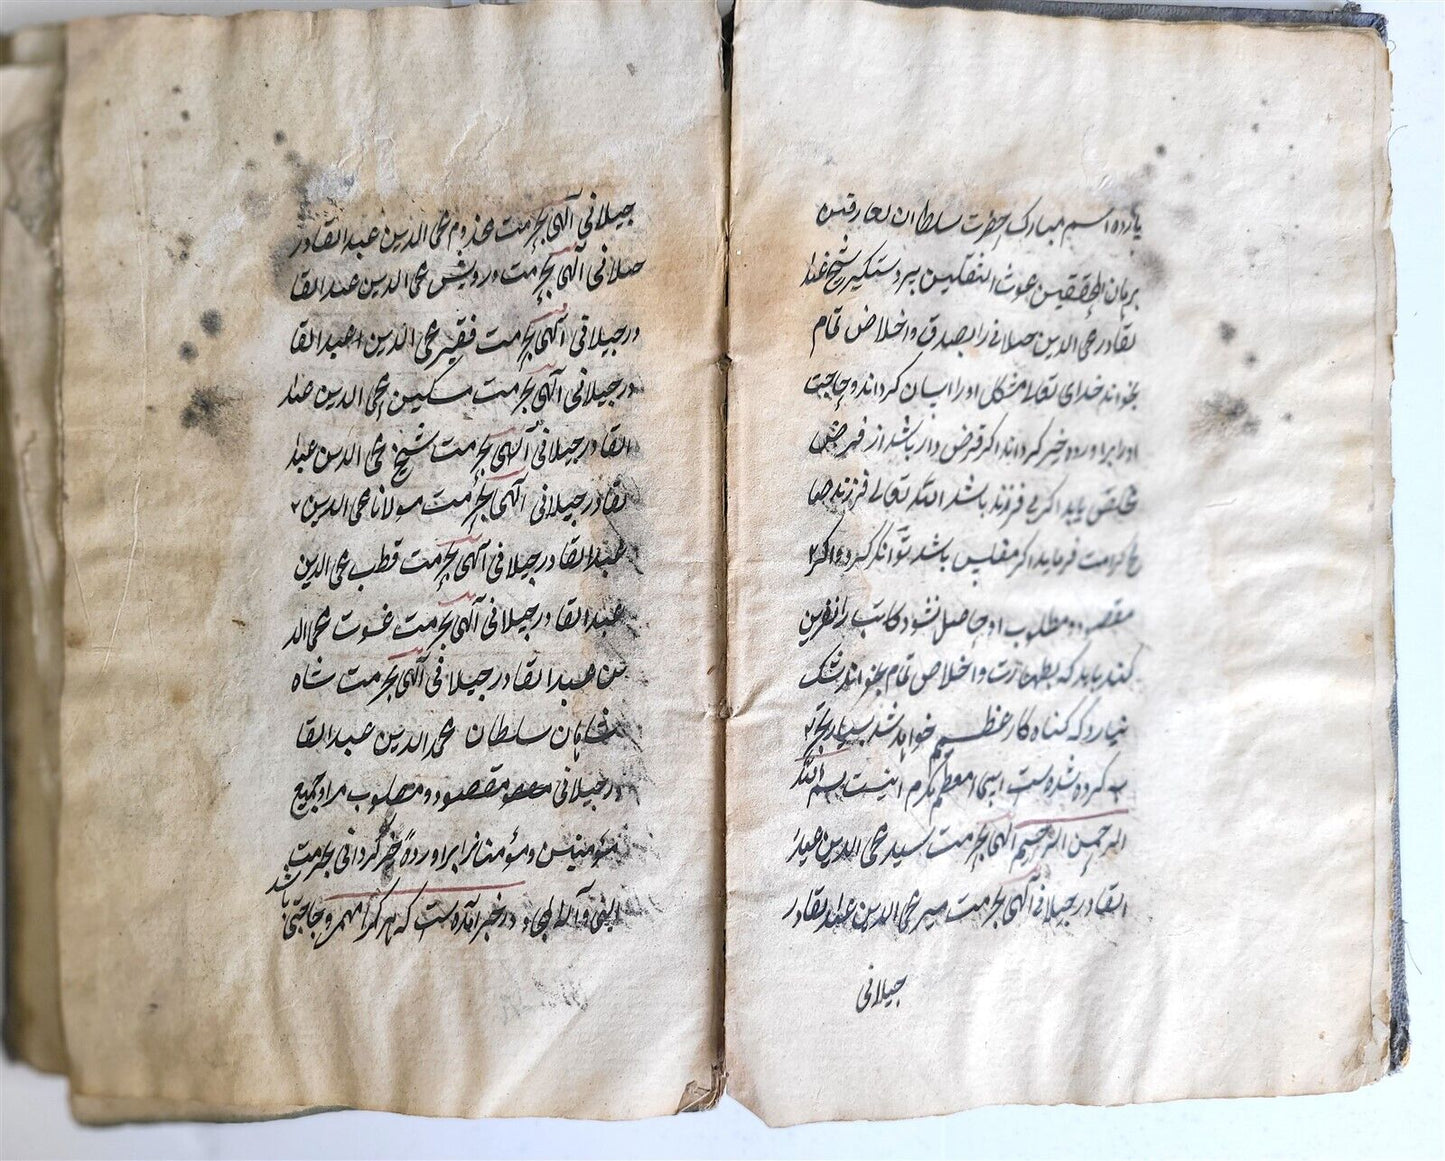 یازده اسم مبارک حضرت سلطان العارفین
برهان المحققین غوث الثقلین پیر دستگیر شیخ عبدا
لقادر محی الدین جیلانی را بصدق و اخلاص تمام
بخواند خدای تعالا مشکل او را اسان کرداند و حاجت
او را براورده خیر کرداند اکر قرض دار باشد از قرض
خلاص یابد اکر بی فرزند باشد الله تعالی فرزند صا
لح کرامت فرماید اکر مفلس باشد توانکر کردد و اکر
مقصود و مطلوب او حاصل نشود کاتب را نفرین
کنند باید که بطهارت و اخلاص تمام بخواند شک
نیارد که کناه کار عظیم خواهد شد بسیار تجر
به کرده شده ست اسمی معظم مکرم اینست بسم الله
الرحمن الرحیم الهی بحرمت سید محی الدین عبد
القادر جیلانی الهی بحرمت میر محی الدین عبدالقادر
جیلانی
جیلانی الهی بحرمت مخدوم محی الدین عبدالقادر
جیلانی الهی بحرمت درویش محی الدین عبدالقا
در جیلانی الهی بحرمت فقیر محی الدین عبدالقا
در جیلانی الهی بحرمت مسکین محی الدین عبد
القادر جیلانی الهی بحرمت شیخ محی الدین عبدا
لقادر جیلانی الهی بحرمت مولانا محی الدین
عبدالقادر جیلانی الهی بحرمت قطب محی الدین
عبدالقادر جیلانی الهی بحرمت غوث محی الد
ین عبدالقادر جیلانی الهی بحرمت شاه
شاهان سلطان محی الدین عبدالقا
در جیلانی مقصود و مطلوب مرا و جمیع
مؤمنین و مؤمنات را براورده خیر کردانی بحرمت
النبی و آله در خبر آمده ست که هر کرا مهم و حاجتی باشد